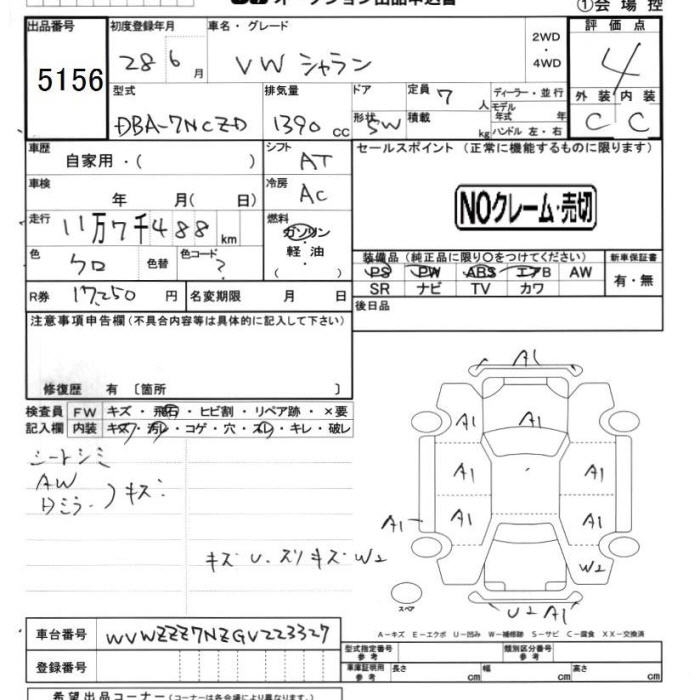 オークション出品申込書
①会場控
出品番号 5156
初度登録年月 28 6月
車名・グレード VW シャラン
2WD・4WD
評価点 4
外装 C 内装 C
型式 DBA-7NCZD
排気量 1390 cc
ドア 形状 5W
定員 7人
積載 kg
ディーラー・並行
モデル年式 年
ハンドル 左・右
車歴 自家用・( )
シフト AT
セールスポイント (正常に機能するものに限ります)
車検 年 月( 日)
冷房 AC
NOクレーム・売切
走行 11万7千488 km
燃料 ガソリン 軽油 ( )
色 クロ 色替 色コード ?
装備品 (純正品に限り○をつけてください)
新車保証書 有・無
PS PW ABS エアB AW
SR ナビ TV カワ
R券 17,250 円 名変期限 月 日
後日品
注意事項申告欄 (不具合内容等は具体的に記入して下さい)
修復歴 有 〔箇所 〕
検査員 FW キズ・飛石・ヒビ割・リペア跡・×要
記入欄 内装 キズ・汚レ・コゲ・穴・スレ・キレ・破レ
シートシミ
AW
Dミラー )キズ
キズ U・スリキズ W2
A1
A1 A1
A1 A1
A1 A1 A1
W2
スペア
U2 A1
A-キズ E-エクボ U-凹み W-補修跡 S-サビ C-腐食 XX-交換済
車台番号 WVWZZZ7NZGV223327
型式指定番号 類別区分番号
登録番号
車庫証明用参考 長さ cm 幅 cm 高さ cm
希望出品コーナー (コーナーは各会場により異なります。)